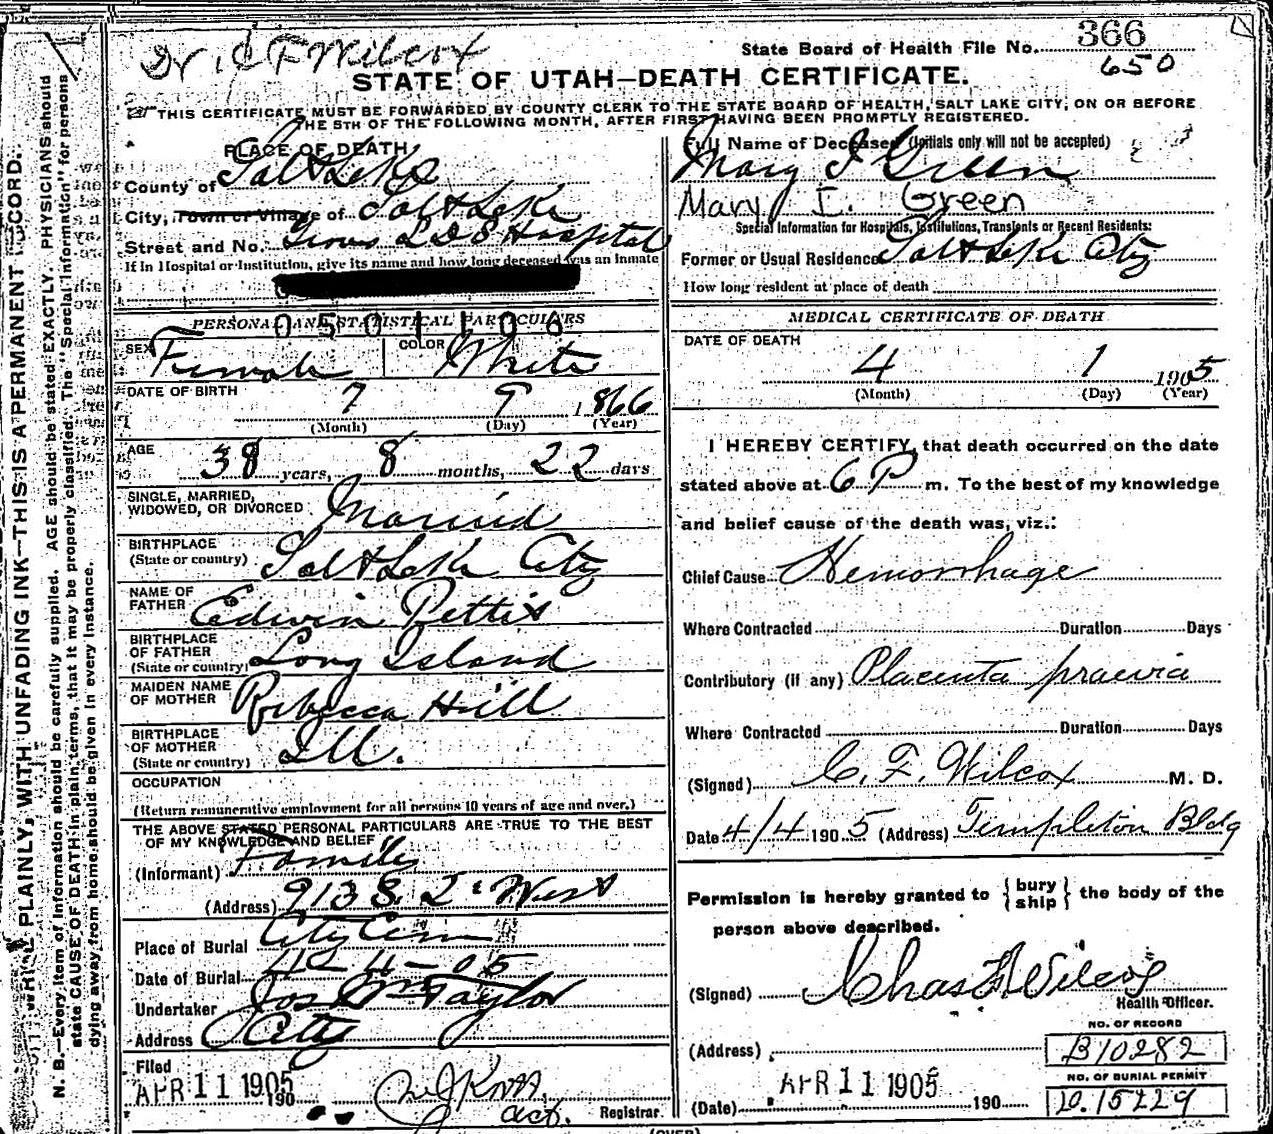 Dr. C F Wilcox
State Board of Health File No. 366
650
STATE OF UTAH—DEATH CERTIFICATE.
THIS CERTIFICATE MUST BE FORWARDED BY COUNTY CLERK TO THE STATE BOARD OF HEALTH, SALT LAKE CITY, ON OR BEFORE
THE 5TH OF THE FOLLOWING MONTH, AFTER FIRST HAVING BEEN PROMPTLY REGISTERED.
WRITE PLAINLY, WITH UNFADING INK—THIS IS A PERMANENT RECORD.
N. B.—Every item of information should be carefully supplied. AGE should be stated EXACTLY. PHYSICIANS should
state CAUSE OF DEATH in plain terms, that it may be properly classified. The "Special Information" for persons
dying away from home should be given in every instance.
PLACE OF DEATH
County of Salt Lake
City, Town or Village of Salt Lake
Street and No. L D S Hospital
If in Hospital or Institution, give its name and how long deceased was an inmate
PERSONAL AND STATISTICAL PARTICULARS
0501106
SEX Female COLOR White
DATE OF BIRTH 7 9 1866
(Month) (Day) (Year)
AGE 38 years, 8 months, 22 days
SINGLE, MARRIED,
WIDOWED, OR DIVORCED Married
BIRTHPLACE
(State or country) Salt Lake City
NAME OF
FATHER Edwin Pettit
BIRTHPLACE
OF FATHER
(State or country) Long Island
MAIDEN NAME
OF MOTHER Rebecca Hill
BIRTHPLACE
OF MOTHER
(State or country) Ill.
OCCUPATION
(Return remunerative employment for all persons 10 years of age and over.)
THE ABOVE STATED PERSONAL PARTICULARS ARE TRUE TO THE BEST
OF MY KNOWLEDGE AND BELIEF
(Informant) Family
(Address) 913 S. 2 West
Place of Burial City Cem
Date of Burial 4-4-05
Undertaker Jos Wm Taylor
Address City
Filed
APR 11 1905 190
act. Registrar.
Full Name of Deceased (Initials only will not be accepted)
Mary I Green
Mary I. Green
Special Information for Hospitals, Institutions, Transients or Recent Residents:
Former or Usual Residence Salt Lake City
How long resident at place of death
MEDICAL CERTIFICATE OF DEATH
DATE OF DEATH
4 1 1905
(Month) (Day) (Year)
I HEREBY CERTIFY, that death occurred on the date
stated above at 6 P m. To the best of my knowledge
and belief cause of the death was, viz.:
Chief Cause Hemorrhage
Where Contracted Duration Days
Contributory (if any) Placenta praevia
Where Contracted Duration Days
(Signed) C. F. Wilcox M. D.
Date 4/4 1905 (Address) Templeton Bldg
Permission is hereby granted to { bury ship } the body of the
person above described.
(Signed) Chas F Wilcox
Health Officer.
NO. OF RECORD
(Address) B10282
NO. OF BURIAL PERMIT
APR 11 1905
(Date) 190 D.15229
(OVER)